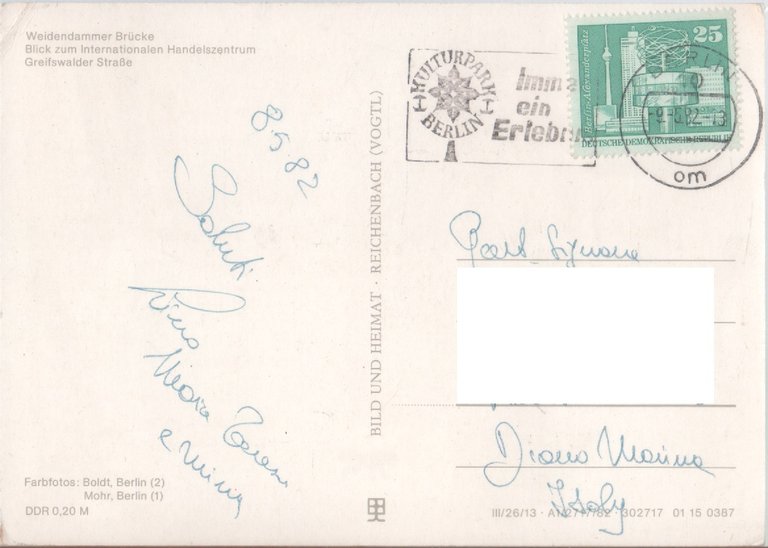 Weidendammer Brücke
Blick zum Internationalen Handelszentrum
Greifswalder Straße
8 5 82
Saluti
Pino
Maria Teresa
e Mina
Farbfotos: Boldt, Berlin (2)
Mohr, Berlin (1)
DDR 0,20 M
BILD UND HEIMAT · REICHENBACH (VOGTL)
KULTURPARK
BERLIN
Imme
ein
Erlebn
25
Berlin-Alexanderplatz
DEUTSCHE DEMOKRATISCHE REPUBLIK
BERLIN
-9.-5.82-13
om
Signora
Diano Marina
Italy
III/26/13 · A1/2717/82 · 302717 01 15 0387